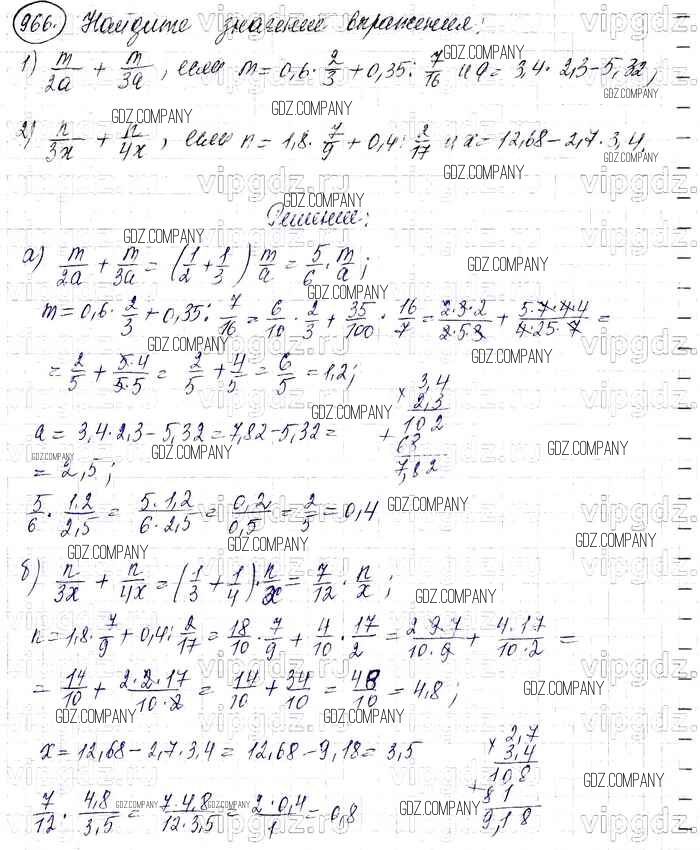 966. Найдите значения выражения:
1) m/2a + m/3a, если m = 0,6 · 2/3 + 0,35 : 7/16 и a = 3,4 · 2,3 − 5,32;
2) n/3x + n/4x, если n = 1,8 · 7/9 + 0,4 : 2/17 и x = 12,68 − 2,7 · 3,4.
Решение:
а) m/2a + m/3a = (1/2 + 1/3) m/a = 5/6 · m/a;
m = 0,6 · 2/3 + 0,35 : 7/16 = 6/10 · 2/3 + 35/100 · 16/7 = 2·3·2/2·5·3 + 5·7·4·4/4·25·7 =
= 2/5 + 5·4/5·5 = 2/5 + 4/5 = 6/5 = 1,2;
a = 3,4 · 2,3 − 5,32 = 7,82 − 5,32 =
= 2,5;
× 3,4
2,3
102
+ 68
7,82
5/6 · 1,2/2,5 = 5·1,2/6·2,5 = 0,2/0,5 = 2/5 = 0,4
б) n/3x + n/4x = (1/3 + 1/4) · n/x = 7/12 · n/x;
n = 1,8 · 7/9 + 0,4 : 2/17 = 18/10 · 7/9 + 4/10 · 17/2 = 2·9·7/10·9 + 4·17/10·2 =
= 14/10 + 2·2·17/10·2 = 14/10 + 34/10 = 48/10 = 4,8;
x = 12,68 − 2,7 · 3,4 = 12,68 − 9,18 = 3,5
× 2,7
3,4
108
+ 81
9,18
7/12 · 4,8/3,5 = 7·4,8/12·3,5 = 2·0,4/1 = 0,8
GDZ.COMPANY
vipgdz.ru